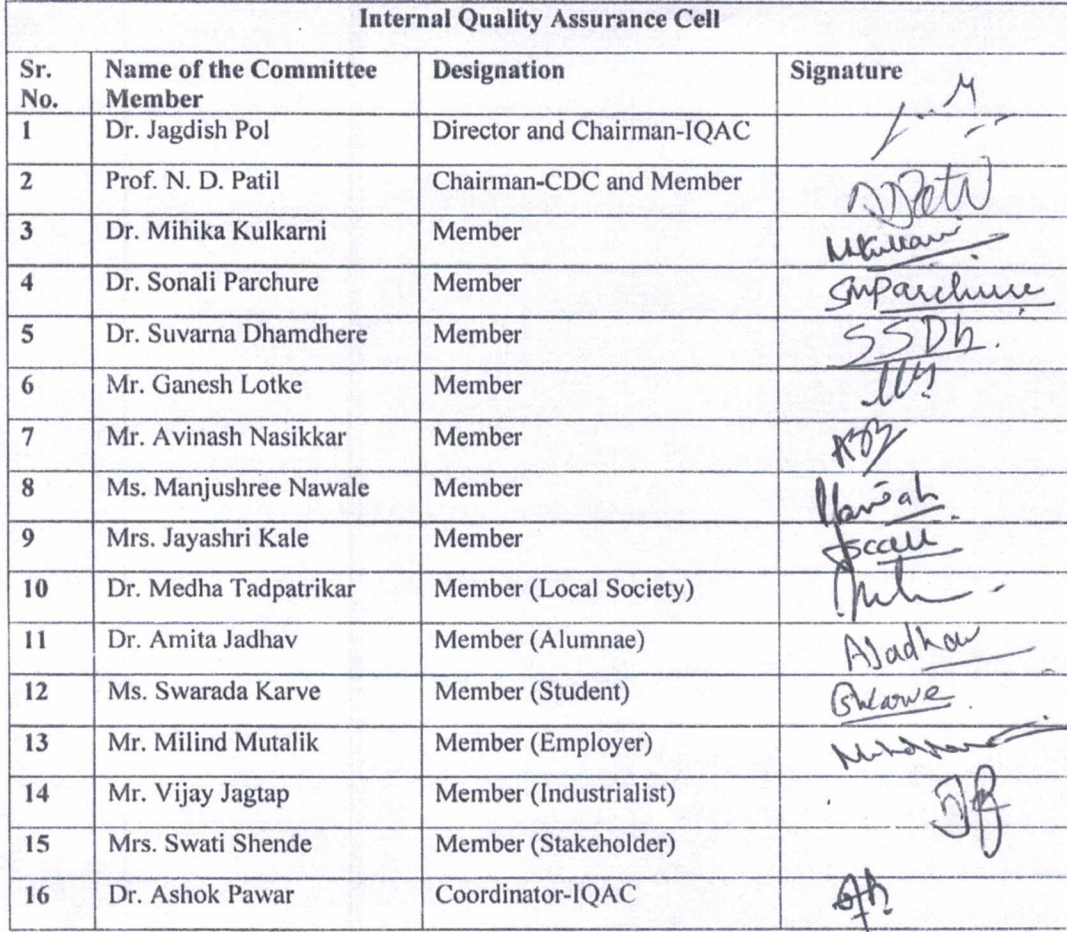 Internal Quality Assurance Cell
Sr. No. Name of the Committee Member Designation Signature
1 Dr. Jagdish Pol Director and Chairman-IQAC
2 Prof. N. D. Patil Chairman-CDC and Member NDPatil
3 Dr. Mihika Kulkarni Member
4 Dr. Sonali Parchure Member SMParchure
5 Dr. Suvarna Dhamdhere Member SSDh.
6 Mr. Ganesh Lotke Member
7 Mr. Avinash Nasikkar Member
8 Ms. Manjushree Nawale Member
9 Mrs. Jayashri Kale Member
10 Dr. Medha Tadpatrikar Member (Local Society)
11 Dr. Amita Jadhav Member (Alumnae) AJadhav
12 Ms. Swarada Karve Member (Student)
13 Mr. Milind Mutalik Member (Employer)
14 Mr. Vijay Jagtap Member (Industrialist)
15 Mrs. Swati Shende Member (Stakeholder)
16 Dr. Ashok Pawar Coordinator-IQAC